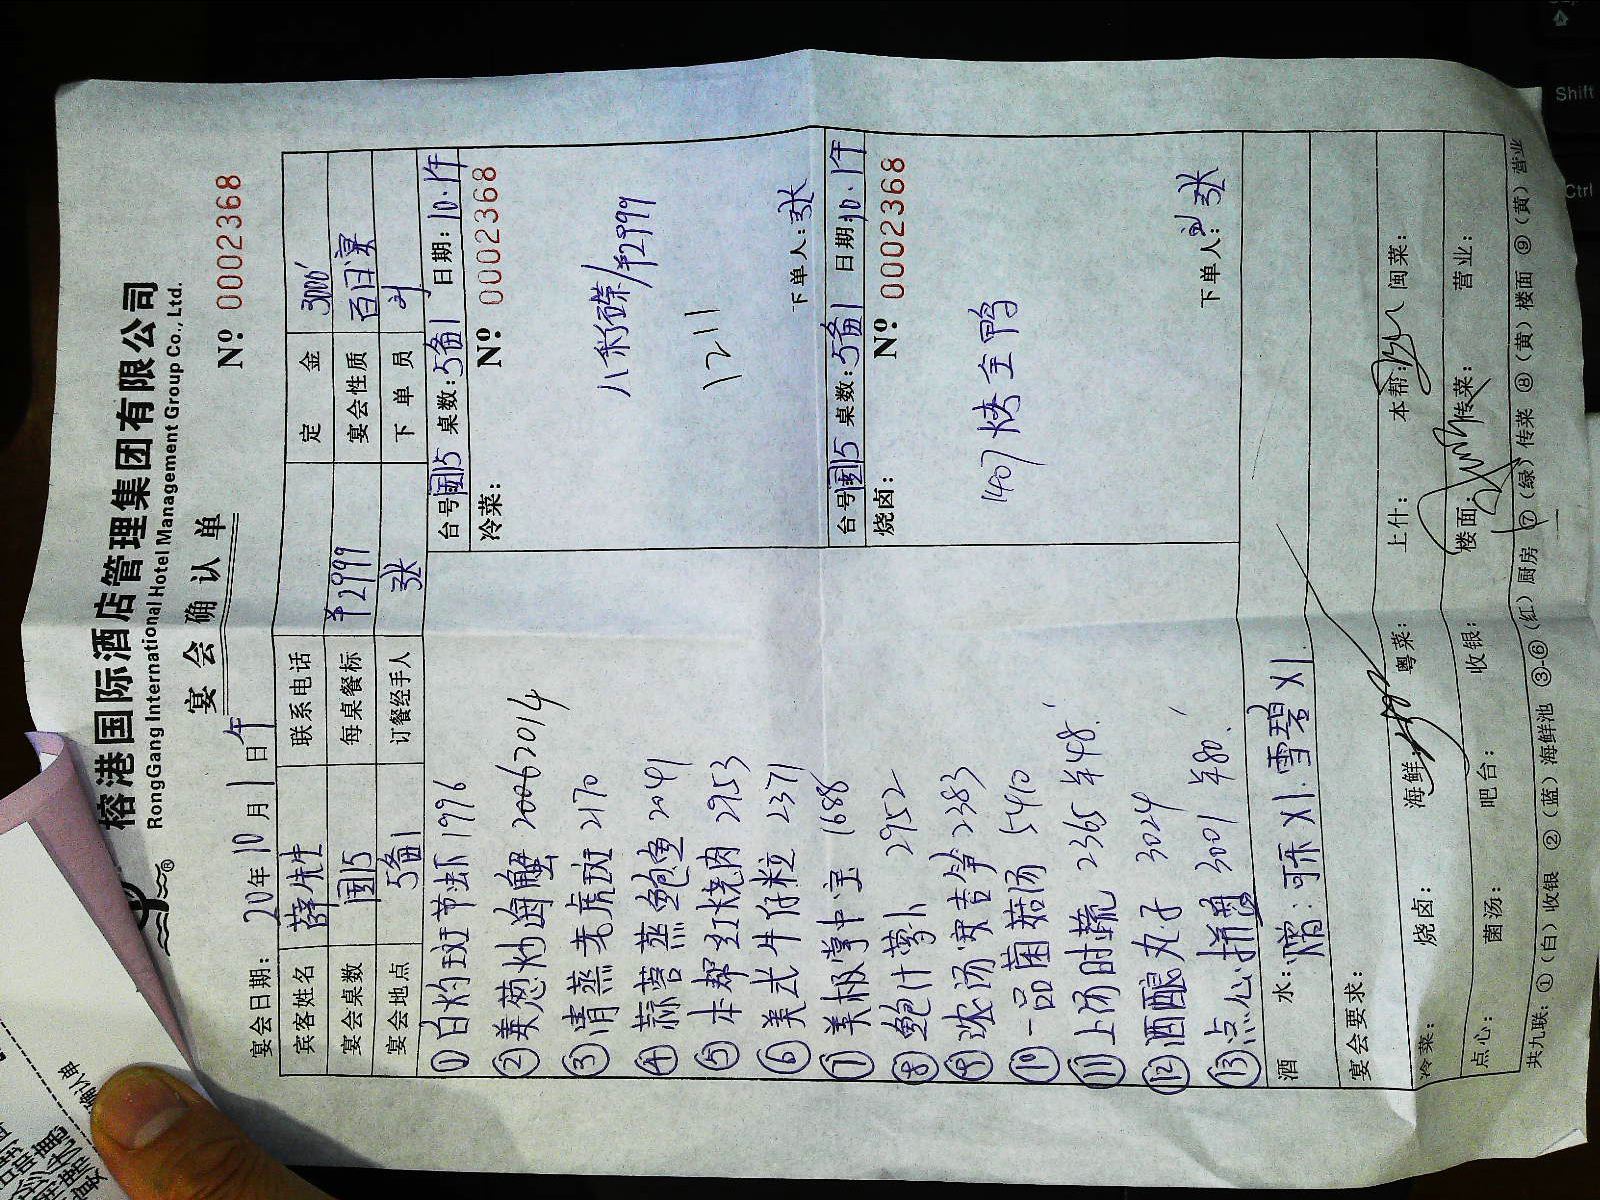 榕港国际酒店管理集团有限公司
RongGang International Hotel Management Group Co., Ltd.
宴会确认单
宴会日期: 20年10月1日午 Nº 0002368
宾客姓名 薛先生 联系电话 定金 3000
宴会桌数 国15 每桌餐标 ¥2999 宴会性质 百日宴
宴会地点 5备1 订餐经手人 张 下单员
①白灼斑节虾 1996
②姜葱炒海蟹 2014
③清蒸老虎斑 2170
④蒜蓉蒸鲍鱼 2041
⑤本帮红烧肉 2953
⑥美式牛仔粒 2371
⑦美极掌中宝 1688
⑧鲍汁萝卜 2952
⑨浓汤安吉笋 2383
⑩一品菌菇汤 5410
⑪上汤时蔬 2365 ¥48
⑫酒酿丸子 3024
⑬点心拼 3001 ¥80
台号国15 桌数: 5备1 日期: 10.1午
冷菜: Nº 0002368
八彩碟/¥2999
1211
下单人: 张
台号国15 桌数: 5备1 日期: 10.1午
烧卤: Nº 0002368
1407 烤全鸭
下单人: 张
酒水: 赠: 可乐X1. 雪碧X1.
宴会要求:
冷菜: 烧卤: 海鲜: 粤菜: 上什: 本帮: 闽菜:
点心: 菌汤: 吧台: 收银: 楼面: 传菜: 营业:
共九联: ①(白)收银 ②(蓝)海鲜池 ③-⑥(红)厨房 ⑦(绿)传菜 ⑧(黄)楼面 ⑨(黄)营业
Shift
Ctrl